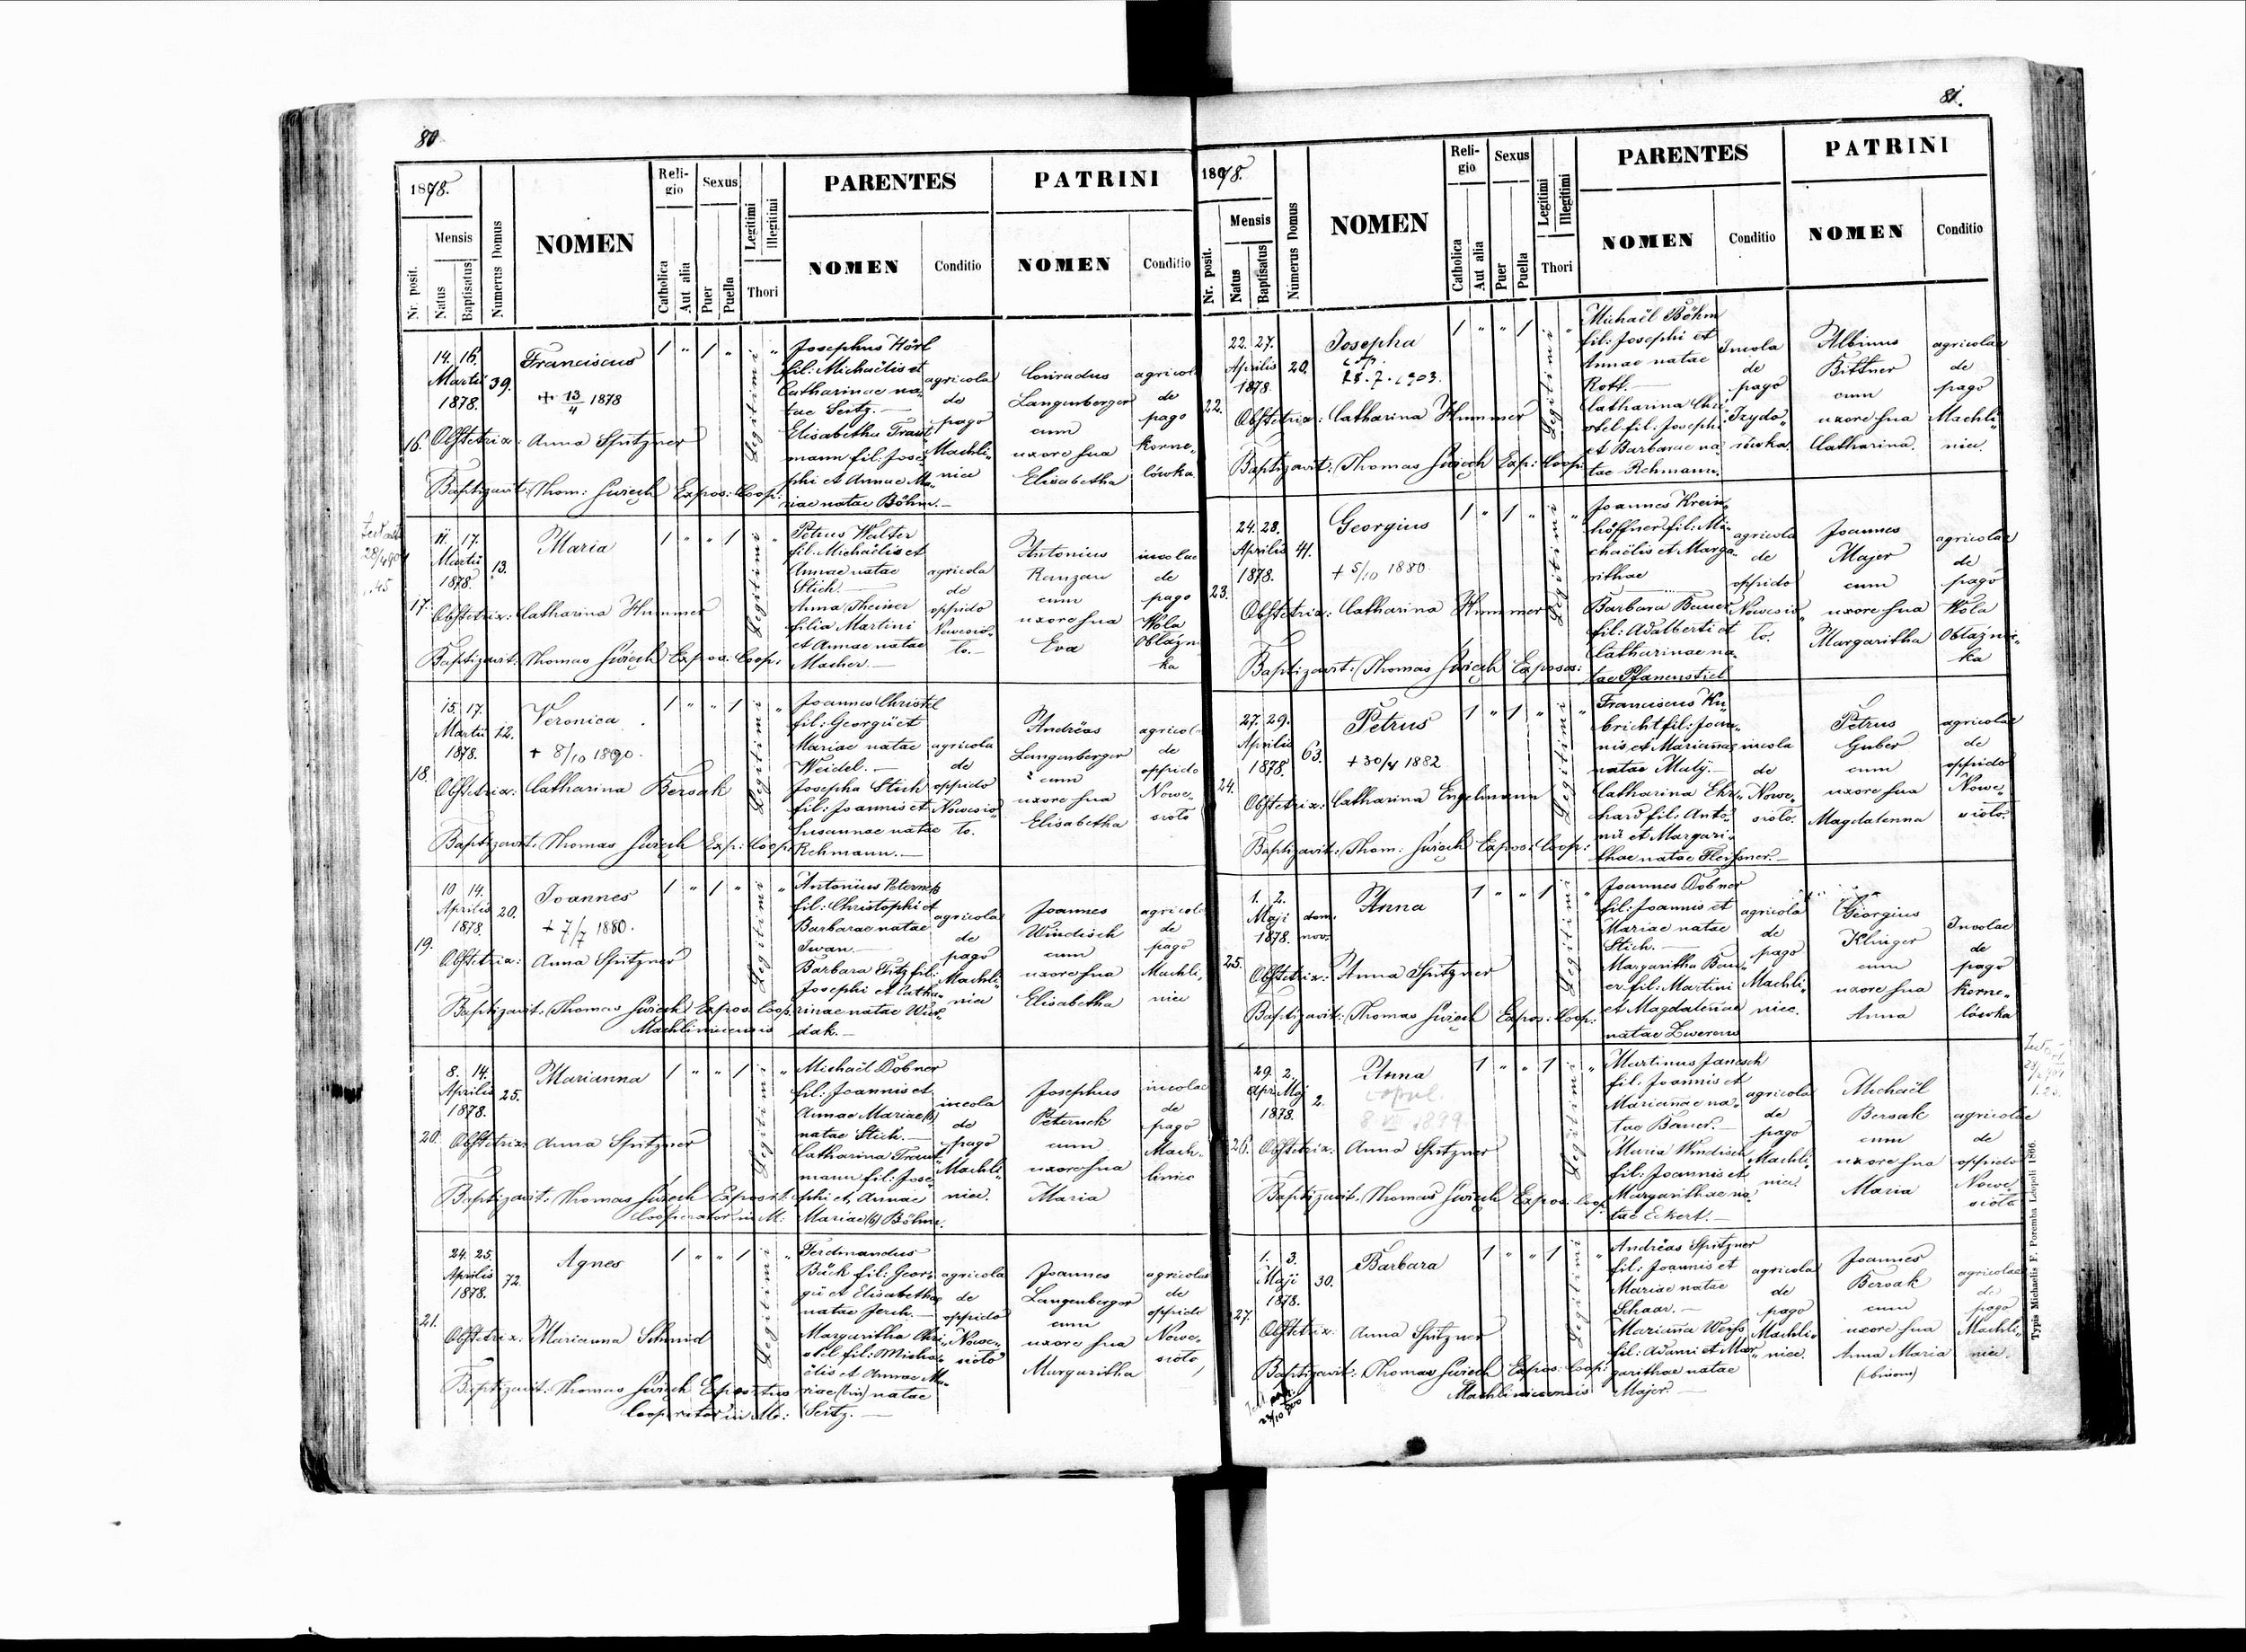 80
1878.
Nr. posit.
Mensis
Natus
Baptisatus
Numerus Domus
NOMEN
Religio
Catholica
Aut alia
Sexus
Puer
Puella
Legitimi
Illegitimi
Thori
PARENTES
NOMEN
Conditio
PATRINI
NOMEN
Conditio
16.
14. 16.
Martii
1878.
39.
Franciscus
+ 13/4 1878
Obstetrix: Anna Spitzner
Baptizavit: Thom: Świech Expos: Coop:
1 " 1 "
Legitimi "
Josephus Hörl
fil: Michaëlis et
Catharinae na-
tae Seitz.—
Elisabetha Traut
mann fil: Jose-
phi et Annae Ma-
riae natae Böhm.—
agricola
de
pago
Machli-
nice
Conradus
Langenberger
cum
uxore sua
Elisabetha
agricol
de
pago
Korne-
lówka
17.
11. 17.
Martii
1878
13.
Maria
Obstetrix: Catharina Hummer
Baptizavit: Thomas Świech Expos: Coop:
1 " " 1
Legitimi "
Petrus Walter
fil: Michaëlis et
Annae natae
Stich.—
Anna Theiner
filia Martini
et Annae natae
Macher.—
agricola
de
oppido
Nowosio-
ło.—
Antonius
Ranzau
cum
uxore sua
Eva
incolae
de
pago
Wola
Obłaźn
ka
18.
15. 17.
Martii
1878.
12.
Veronica
+ 8/10 1890.
Obstetrix: Catharina Bersak
Baptizavit: Thomas Świech Exp: Coop:
1 " " 1
Legitimi "
Joannes Christel
fil: Georgii et
Mariae natae
Weidel.—
Josepha Stich
fil: Joannis et
Susannae natae
Rehmann.—
agricola
de
oppido
Nowosio-
ło.
Andréas
Langenberger
cum
uxore sua
Elisabetha
agricol
de
oppido
Nowe-
sioło
19.
10 14.
Aprilis
1878.
20.
Joannes
+ 7/7 1880.
Obstetrix: Anna Spitzner
Baptizavit: Thomas Świech Expos: Coop.
Machlinicensis
1 " 1 "
Legitimi "
Antonius Peternek
fil: Christophi et
Barbarae natae
Iwan.—
Barbara Titz fil:
Josephi et Catha-
rinae natae Wur-
dak.—
agricola
de
pago
Machli-
nice
Joannes
Windisch
cum
uxore sua
Elisabetha
agricol
de
pago
Machli-
nice
20.
8. 14.
Aprilis
1878.
25.
Marianna
Obstetrix: Anna Spitzner
Baptizavit: Thomas Świech Exposit:
Cooperator in M:
1 " " 1
Legitimi "
Michaël Dobner
fil: Joannis et
Annae Mariae
natae Stich.—
Catharina Traut
mann fil: Jose-
phi et Annae
Mariae Böhm.
incola
de
pago
Machli-
nice.
Josephus
Peternek
cum
uxore sua
Maria
incolae
de
pago
Mach-
linice
21.
24. 25.
Aprilis
1878.
72.
Agnes
Obstetrix: Marianna Schmid
Baptizavit: Thomas Świech Expositus
Cooperator in M:
1 " " 1
Legitimi "
Ferdinandus
Bück fil: Geor-
gii et Elisabethae
natae Jerch.—
Margaritha Chri-
stel fil: Micha-
ëlis et Annae Ma-
riae natae
Seitz.—
agricola
de
oppido
Nowe-
sioło
Joannes
Langenberger
cum
uxore sua
Margaritha
agricolae
de
oppido
Nowe-
sioło
81.
1878.
Nr. posit.
Mensis
Natus
Baptisatus
Numerus Domus
NOMEN
Religio
Catholica
Aut alia
Sexus
Puer
Puella
Legitimi
Illegitimi
Thori
PARENTES
NOMEN
Conditio
PATRINI
NOMEN
Conditio
22.
22. 27.
Aprilis
1878.
20.
Josepha
25.7.1903.
Obstetrix: Catharina Hummer
Baptizavit: Thomas Świech Exp: Coop:
1 " " 1
Legitimi "
Michaël Böhm
fil: Josephi et
Annae natae
Rott.—
Catharina Chri-
stel fil: Josephi
et Barbarae na-
tae Rehmann.
Incola
de
pago
Izydo-
rówka
Albinus
Bittner
cum
uxore sua
Catharina.
agricolae
de
pago
Machli-
nice.
23.
24. 28.
Aprilis
1878.
41.
Georgius
+ 5/10 1880.
Obstetrix: Catharina Hummer
Baptizavit: Thomas Świech Expos:
1 " 1 "
Legitimi "
Joannes Krein-
höffner fil: Mi-
chaëlis et Marga-
rithae
Barbara Bauer
fil: Adalberti et
Catharinae na-
tae Pfanenstiel
agricola
de
oppido
Nowosio-
ło.
Joannes
Majer
cum
uxore sua
Margaritha
agricolae
de
pago
Wola
Obłaźni-
ka
24.
27. 29.
Aprilis
1878.
63.
Petrus
+ 30/4 1882
Obstetrix: Catharina Engelmann
Baptizavit: Thom: Świech Expos: Coop:
1 " 1 "
Legitimi "
Franciscus Ku-
bricht fil: Joan-
nis et Mariannae
natae Maly.—
Catharina Ehr-
hard fil: Anto-
nii et Margari-
thae natae Fleissner.—
incola
de
Nowe-
sioło.
Petrus
Guber
cum
uxore sua
Magdalenna
agricolae
de
oppido
Nowe-
sioło.
25.
1. 2.
Maji
1878.
dom.
nov.
Anna
Obstetrix: Anna Spitzner
Baptizavit: Thomas Świech Expos: Coop:
1 " " 1
Legitimi "
Joannes Dobner
fil: Joannis et
Mariae natae
Stich.—
Margaritha Bau-
er fil: Martini
et Magdalenae
natae Zwerens
agricola
de
pago
Machli-
nice.
Georgius
Klinger
cum
uxore sua
Anna
Incolae
de
pago
Korne-
lówka
26.
29. 2.
Apr. Maj
1878.
2.
Anna
copul.
8 1899
Obstetrix: Anna Spitzner
Baptizavit: Thomas Świech Expos. Coop
1 " " 1
Legitimi "
Martinus Janesch
fil: Joannis et
Mariannae na-
tae Bauer.—
Maria Windisch
fil: Joannis et
Margarithae na-
tae Eckert.—
agricola
de
pago
Machli-
nice.
Michaël
Bersak
cum
uxore sua
Maria
agricolae
de
oppido
Nowe-
sioło
27.
1. 3.
Maji
1878.
30.
Barbara
Obstetrix: Anna Spitzner
Baptizavit: Thomas Świech Expos: Coop:
Machlinicensis
1 " " 1
Legitimi "
Andréas Spitzner
fil: Joannis et
Mariae natae
Schaar.—
Marianna Weiss
fil: Adami et Mar-
garithae natae
Majer.—
agricola
de
pago
Machli-
nice.
Joannes
Bersak
cum
uxore sua
Anna Maria
agricolae
de
pago
Machli-
nice.
Typis Michaelis F. Poremba Leopoli 1866.